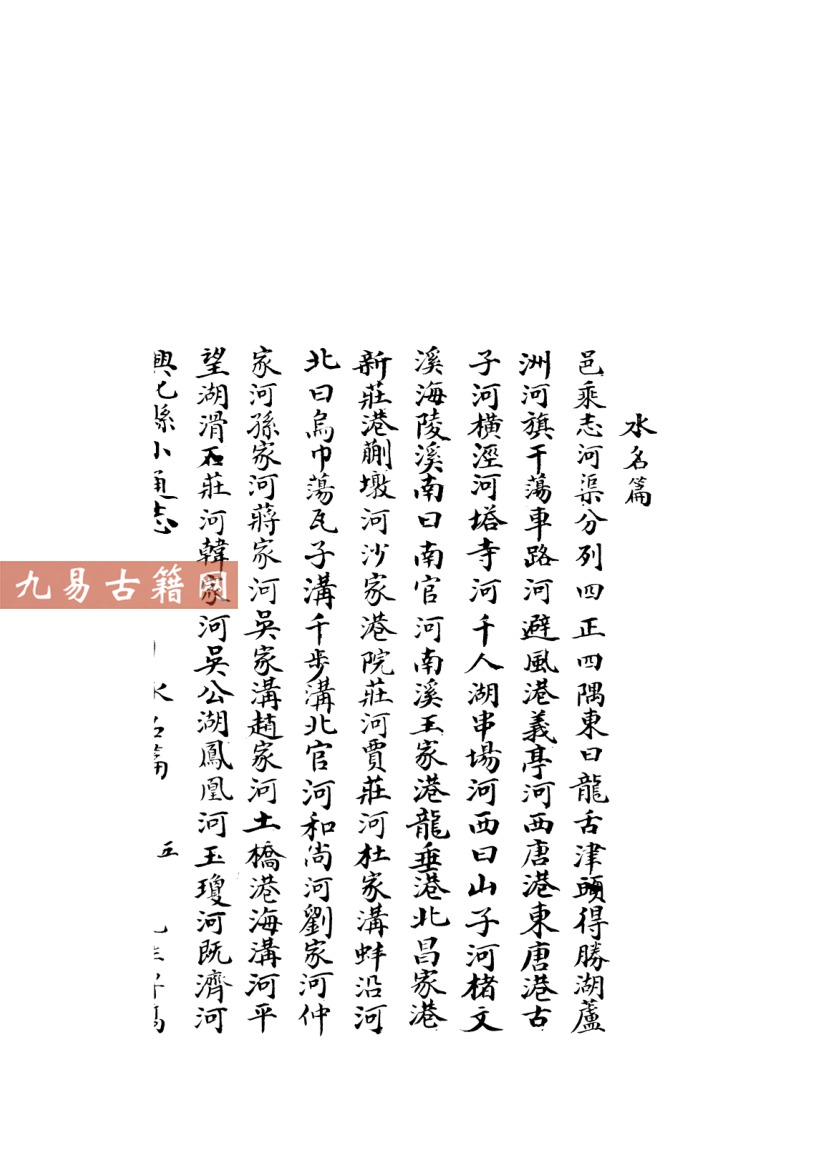 水名篇
邑乘志河渠分列四正四隅東曰龍舌津頭得勝湖蘆
洲河旗干蕩車路河避風港義亭河西唐港東唐港古
子河橫涇河塔寺河千人湖串場河西曰山子河楮文
溪海陵溪南曰南官河南溪王家港龍垂港北昌家港
新莊港蒯墩河沙家港院莊河賈莊河杜家溝蚌沿河
北曰烏巾蕩瓦子溝千步溝北官河和尚河劉家河仲
家河孫家河蔣家河吳家溝趙家河土橋港海溝河平
望湖滑石莊河韓家河吳公湖鳳凰河玉瓊河既濟河
興化縣小通志 水名篇 五
九易古籍网